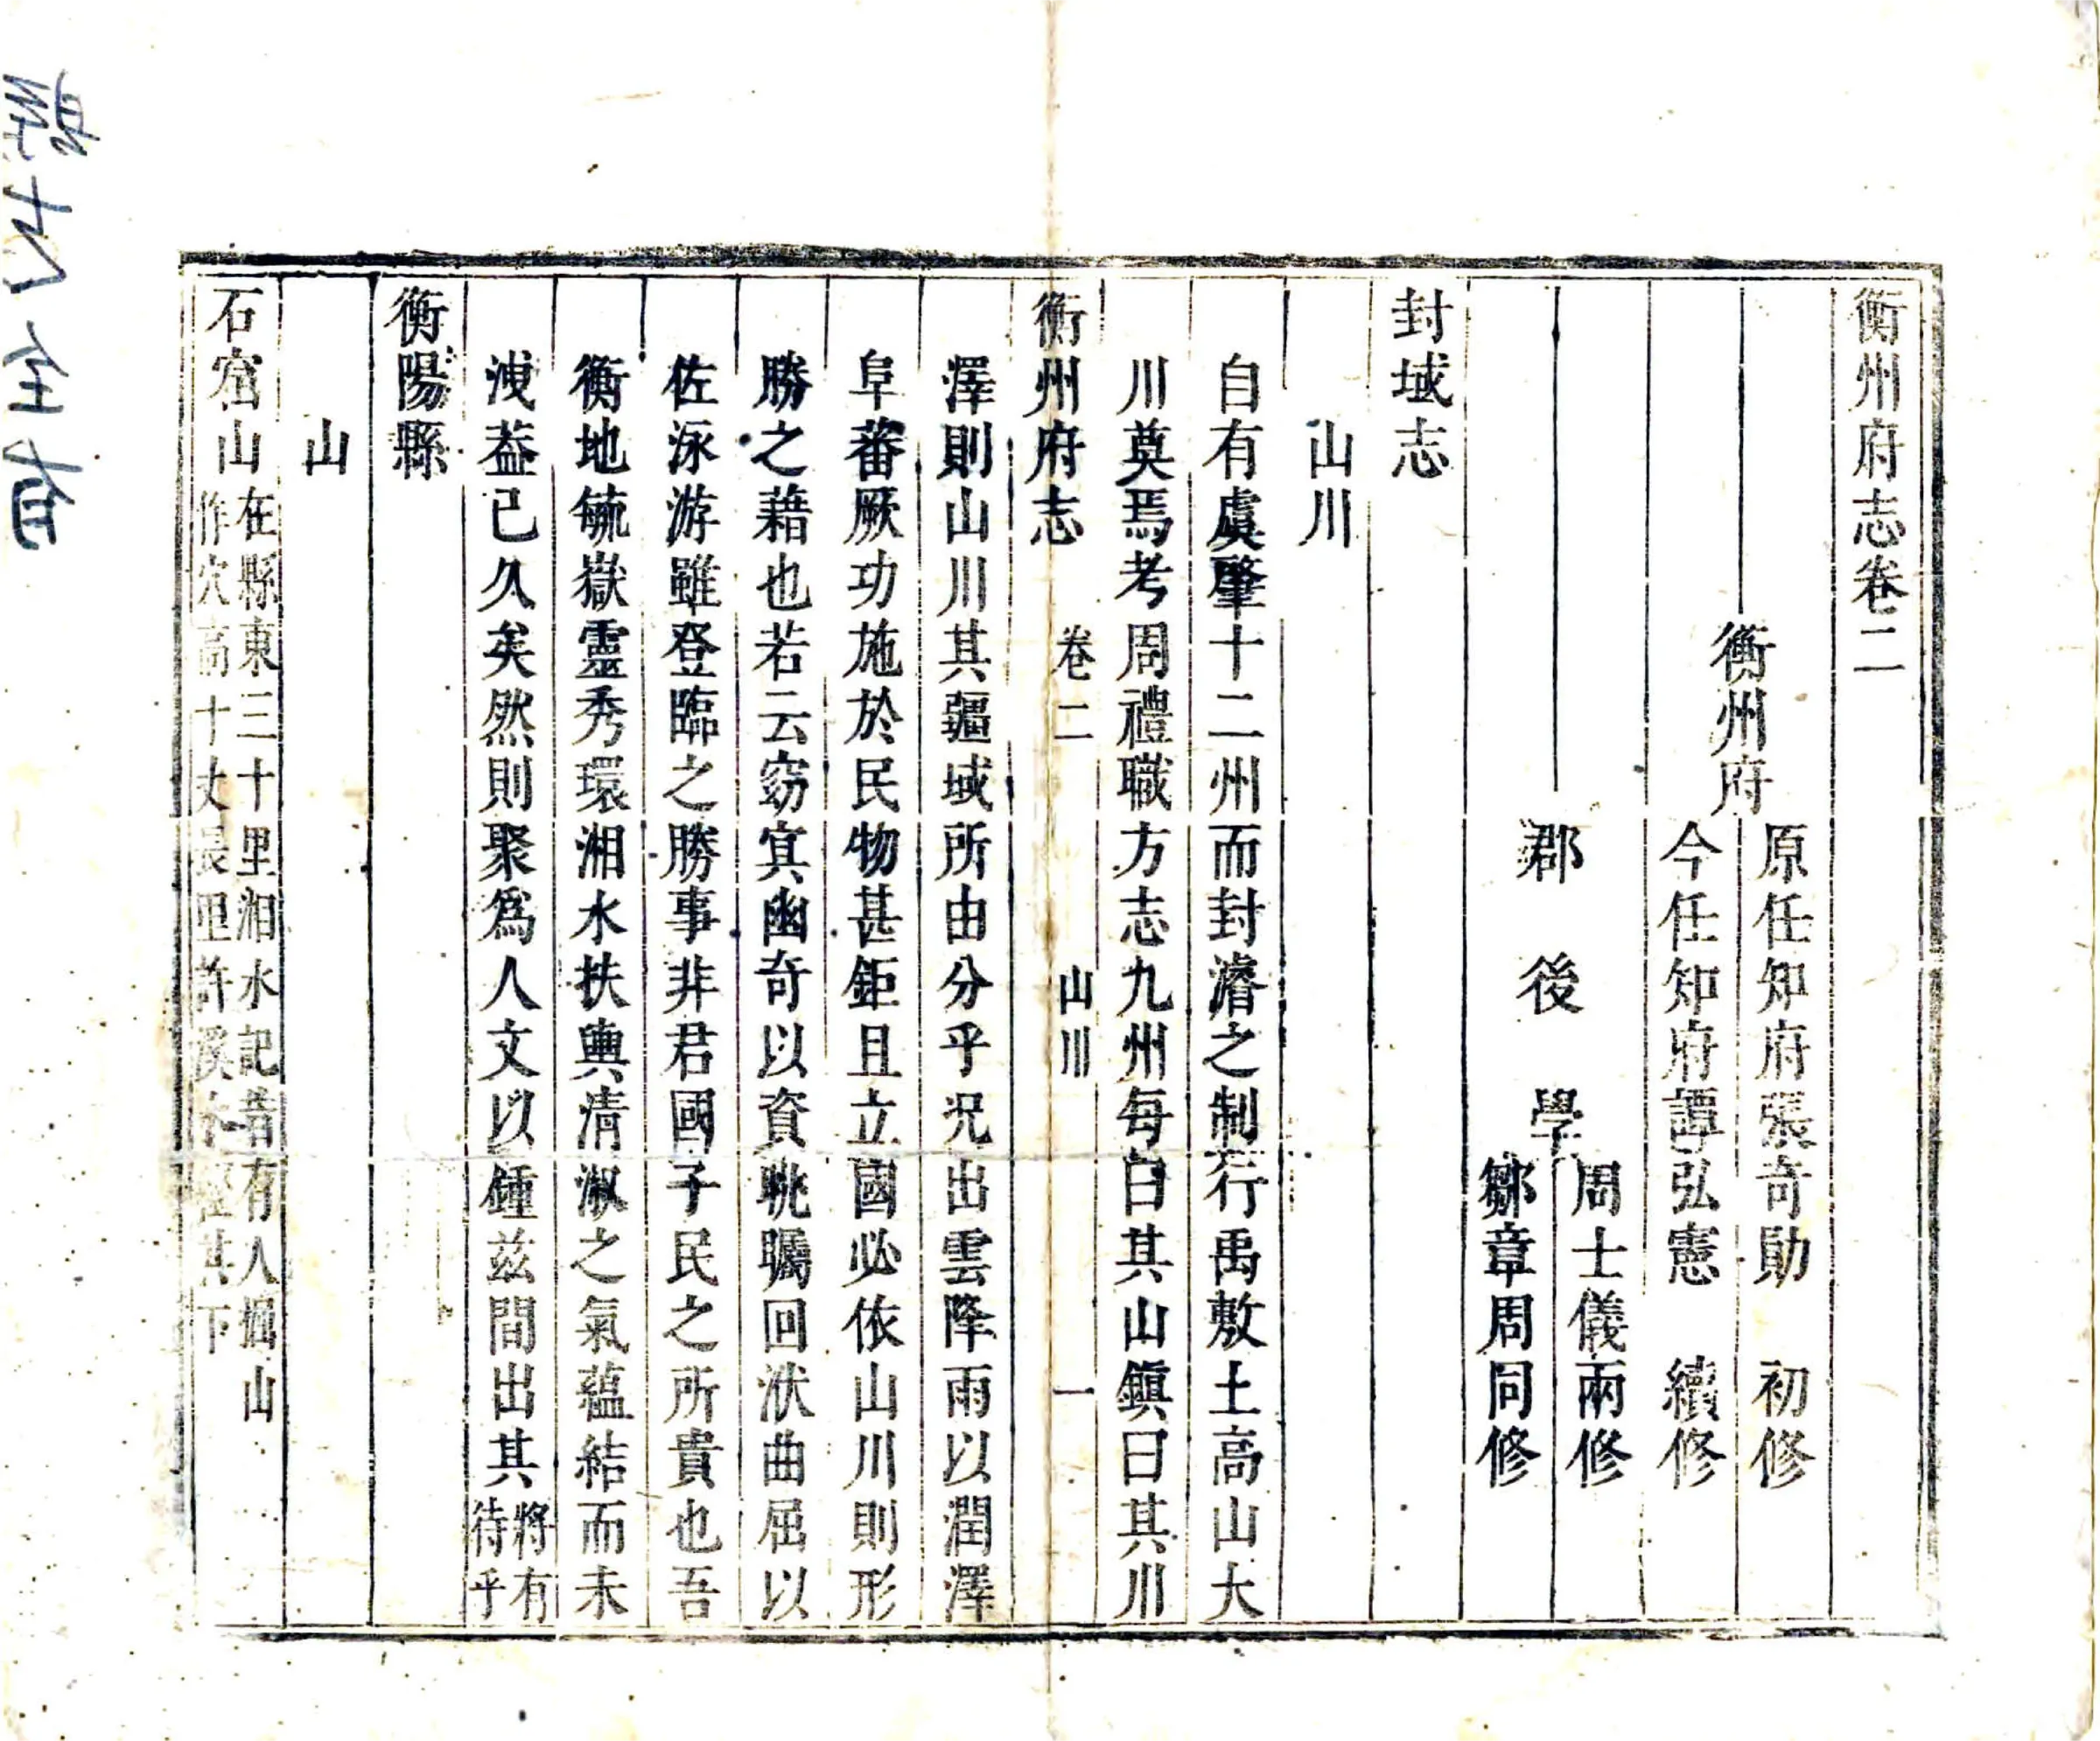 衡州府志卷二
衡州府
原任知府張奇勛　初修
今任知府譚弘憲　續修
郡後學
周士儀兩修
鄒章周同修
封域志
山川
自有虞肇十二州而封濬之制行禹敷土高山大
川奠焉考周禮職方志九州每曰其山鎮曰其川
衡州府志　卷二　山川　一
澤則山川其疆域所由分乎况出雲降雨以潤澤
阜蕃厥功施於民物甚鉅且立國必依山川則形
勝之藉也若云窈寘幽奇以資眺矚回洑曲屈以
佐泳游雖登臨之勝事非君國子民之所貴也吾
衡地毓嶽靈秀環湘水扶輿清淑之氣蘊結而未
洩葢已久矣然則聚爲人文以鍾兹間出其將有
待乎
衡陽縣
山
石窌山在縣東三十里湘水記昔有人掘山
作穴高十丈長里許溪水經其下